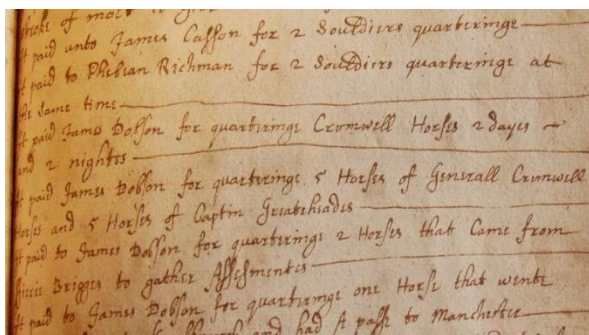 stroke of molt to
It paid unto James Casson for 2 Souldiers quarteringe
It paid to Phebian Richman for 2 Souldiers quarteringe at
the same time
It paid James Dobson for quarteringe Crumwell Horses 2 dayes
and 2 nightes
It paid James Dobson for quarteringe 5 Horses of Generall Crumwell
Horses and 5 Horses of Captin Greatheades
It paid to James Dobson for quarteringe 2 Horses that Came from
Brigges to gather Assesmentes
It paid to James Dobson for quarteringe one Horse that wente
and had A passe to Manchester